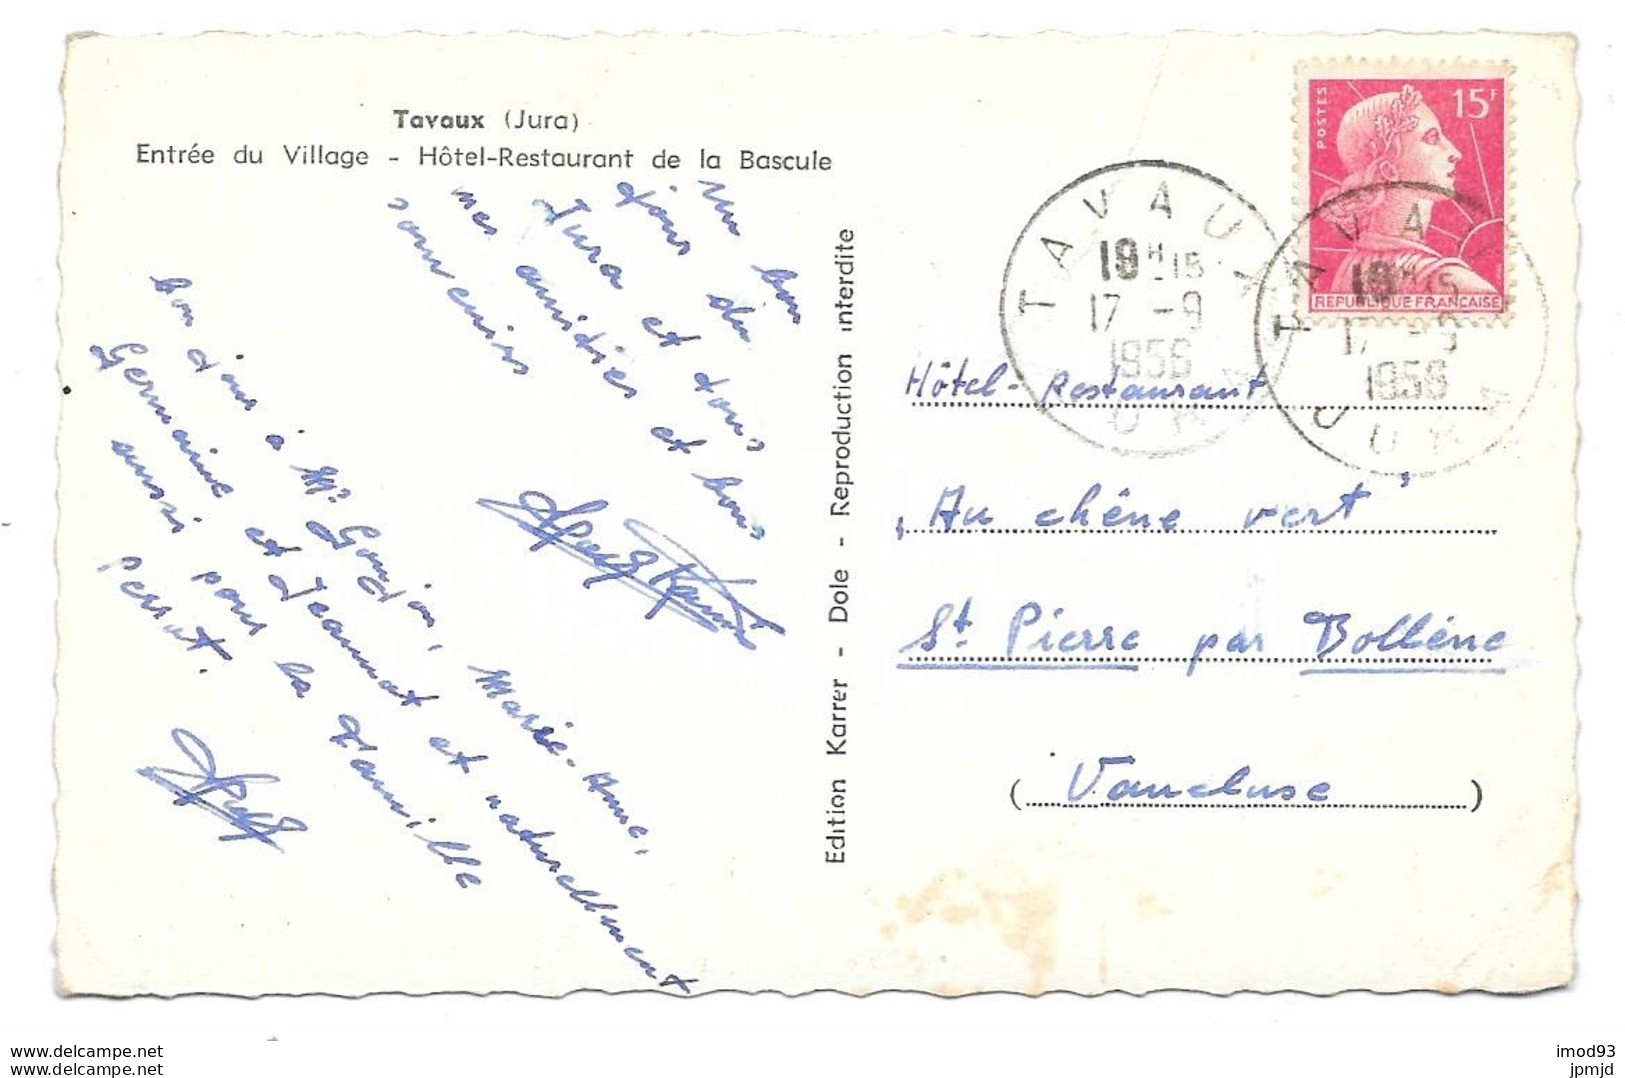 Tavaux (Jura)
Entrée du Village - Hôtel-Restaurant de la Bascule
Un bon
jour du
Jura et tous
mes amitiés et bons
souvenirs
bon jour à Mr Goujon, Marie-Anne,
Germaine et Jeannot et naturellement
aussi pour la famille
perrot.
Edition Karrer - Dole - Reproduction interdite
POSTES
15F
REPUBLIQUE FRANÇAISE
TAVAUX
18H15
17 -9
1956
JURA
TAVAUX
18H15
17 -9
1956
JURA
Hôtel-Restaurant
"Au chêne vert"
St Pierre par Bollène
(Vaucluse)
www.delcampe.net
www.delcampe.com
imod93
jpmjd